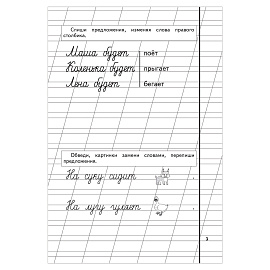 Спиши предложения, изменяя слова правого
столбика.
Маша будет поёт
Коленька будет прыгает
Лена будет бегает
Обведи, картинки замени словами, перепиши
предложения.
На суку сидит .
На лугу гуляет .
3